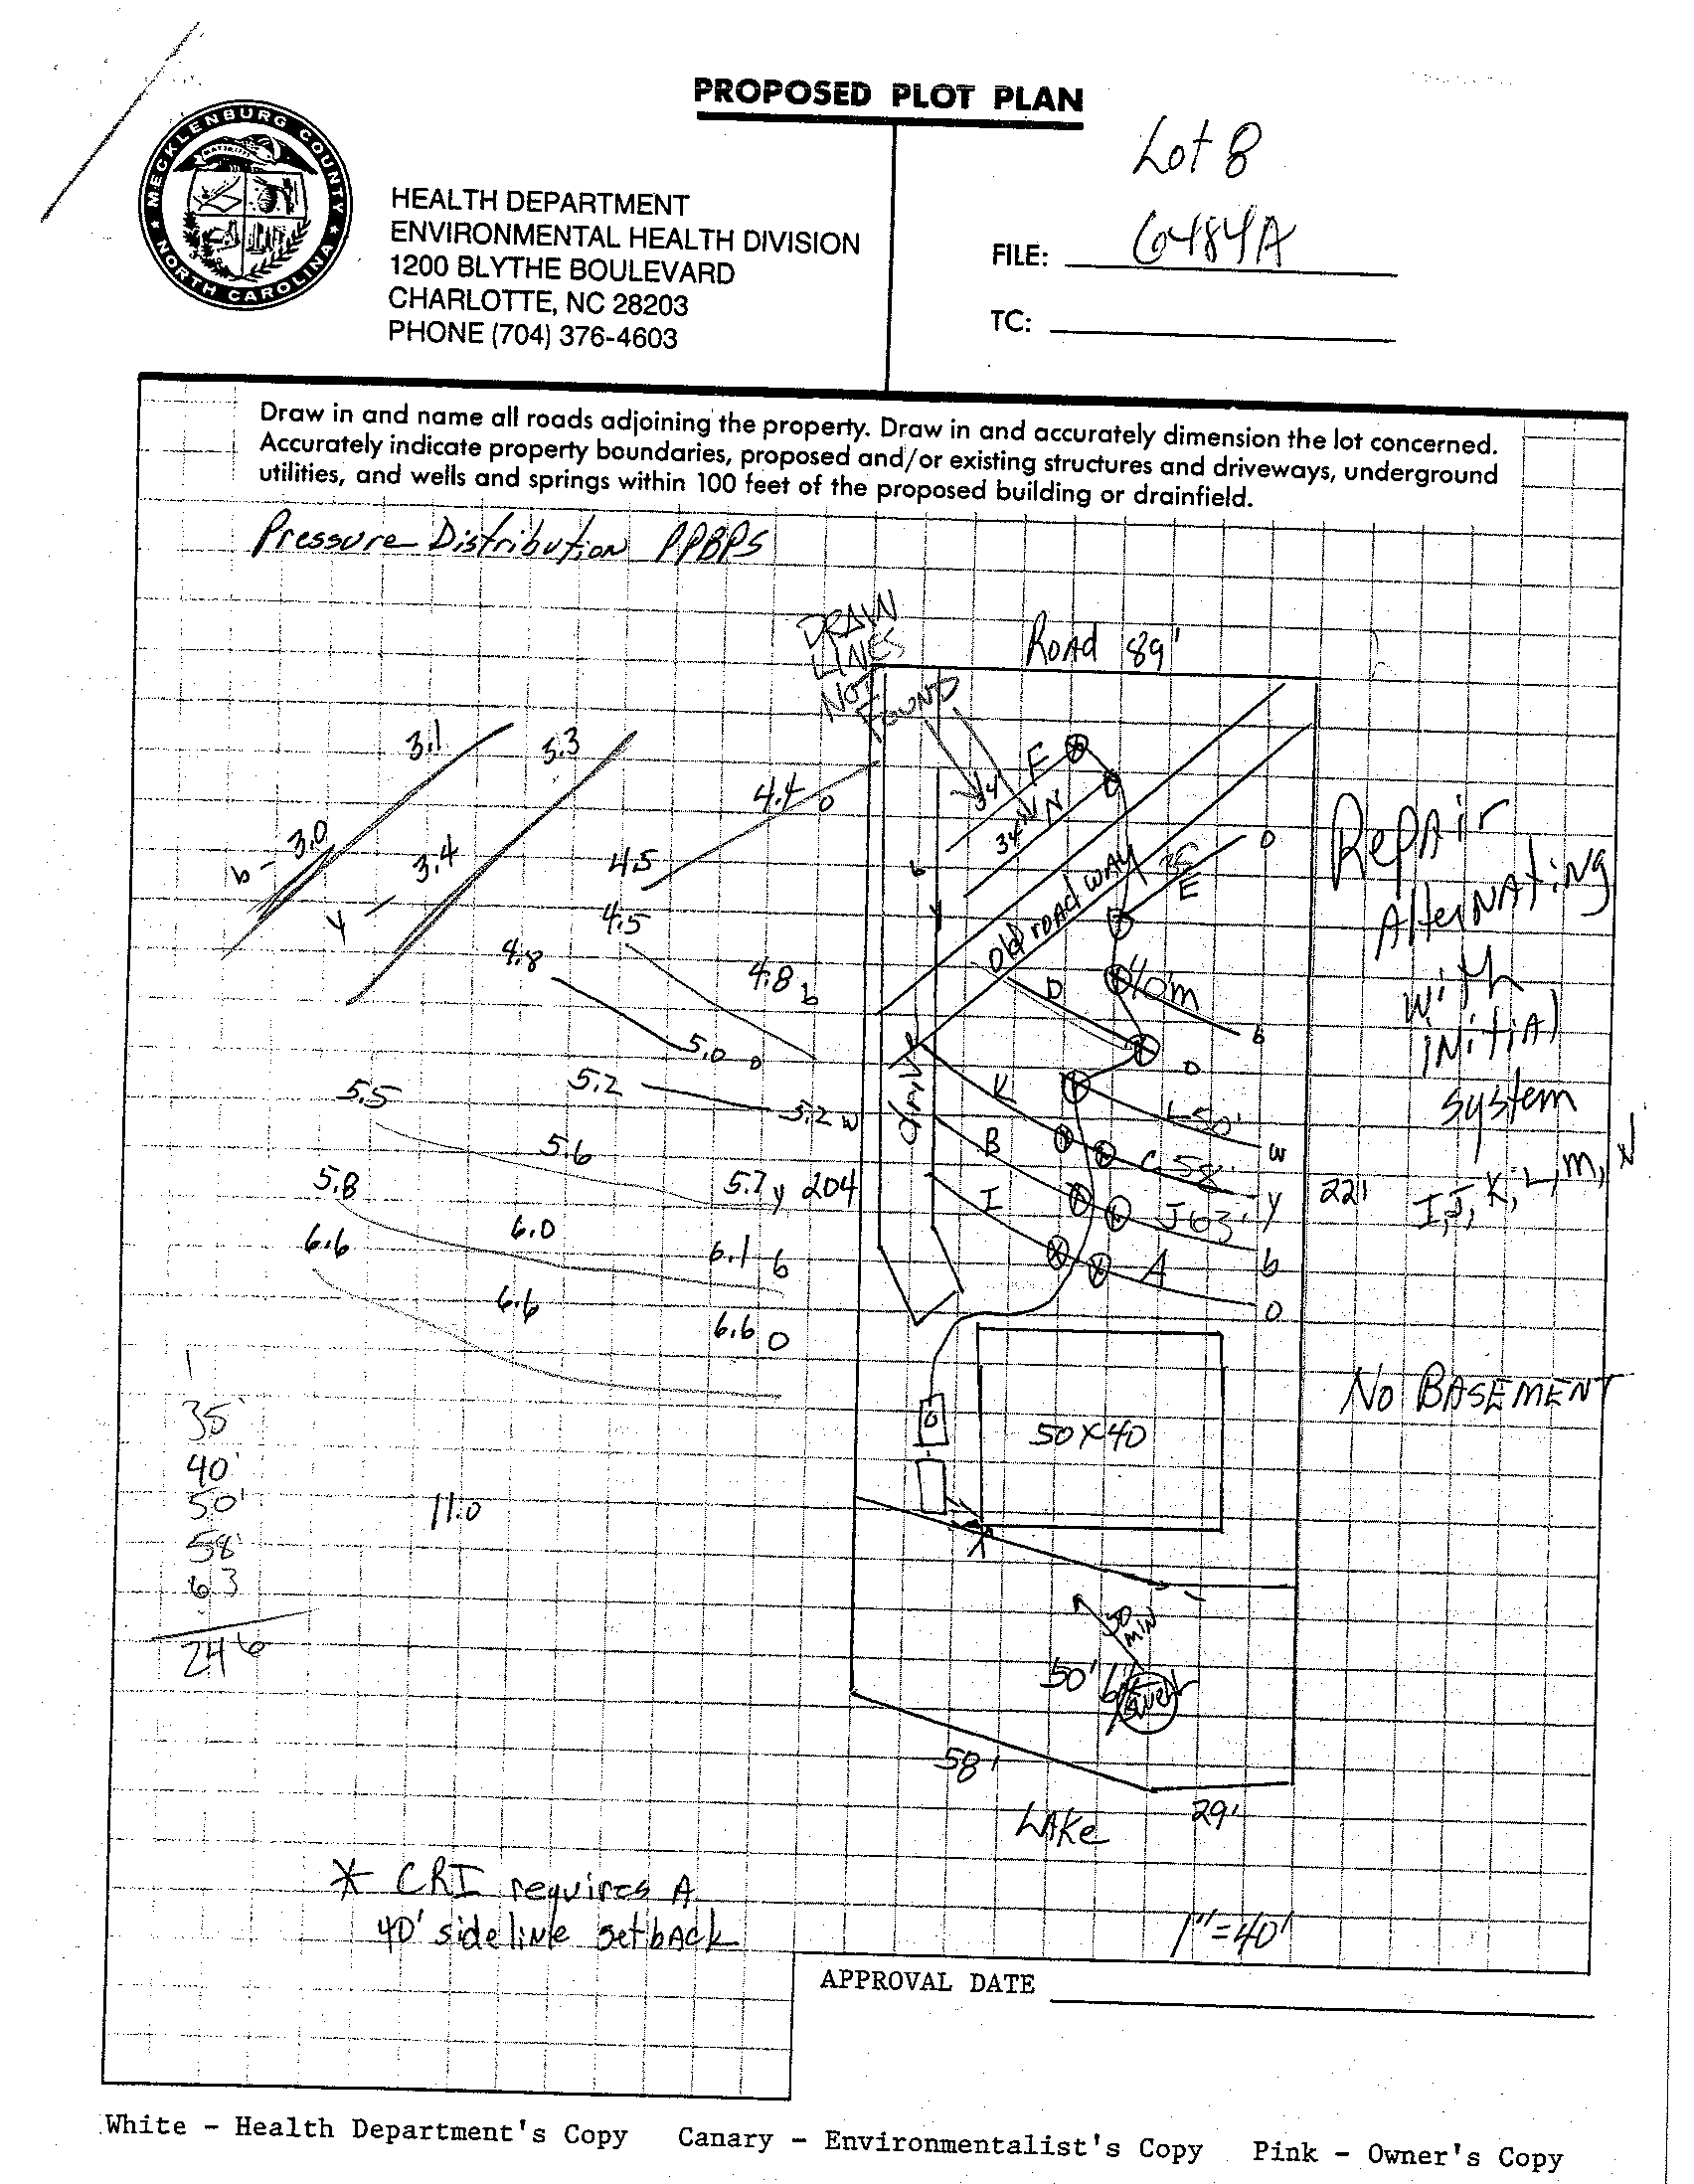 PROPOSED PLOT PLAN
MECKLENBURG COUNTY
NORTH CAROLINA
HEALTH DEPARTMENT
ENVIRONMENTAL HEALTH DIVISION
1200 BLYTHE BOULEVARD
CHARLOTTE, NC 28203
PHONE (704) 376-4603
Lot 8
FILE: 6484A
TC:
Draw in and name all roads adjoining the property. Draw in and accurately dimension the lot concerned.
Accurately indicate property boundaries, proposed and/or existing structures and driveways, underground
utilities, and wells and springs within 100 feet of the proposed building or drainfield.
Pressure Distribution PPBPS
DRAIN
LINES
NOT
FOUND
Road 89'
3.1
3.3
4.4 o
34
F
34
N
b - 3.0
y - 3.4
4.5
b
y
Old roadway
35
E
o
Repair
Alternating
with
initial
system
I, J, K, L, M, N
4.5
4.8
4.8 b
D
40' m
b
5.0 o
o
5.2
5.2 w
5.5
drive
K
L 50'
w
5.6
B
C 58'
y
5.8
5.7 y
204
I
J 63'
y
221
6.0
6.1 b
b
6.6
A
o
6.6
6.6 o
35'
40'
50'
58'
63
246
11.0
50 X 40
NO BASEMENT
50
MIN
50'
well
58'
29'
LAKE
* CRI requires A
40' sideline setback
1"=40'
APPROVAL DATE
White - Health Department's Copy Canary - Environmentalist's Copy Pink - Owner's Copy